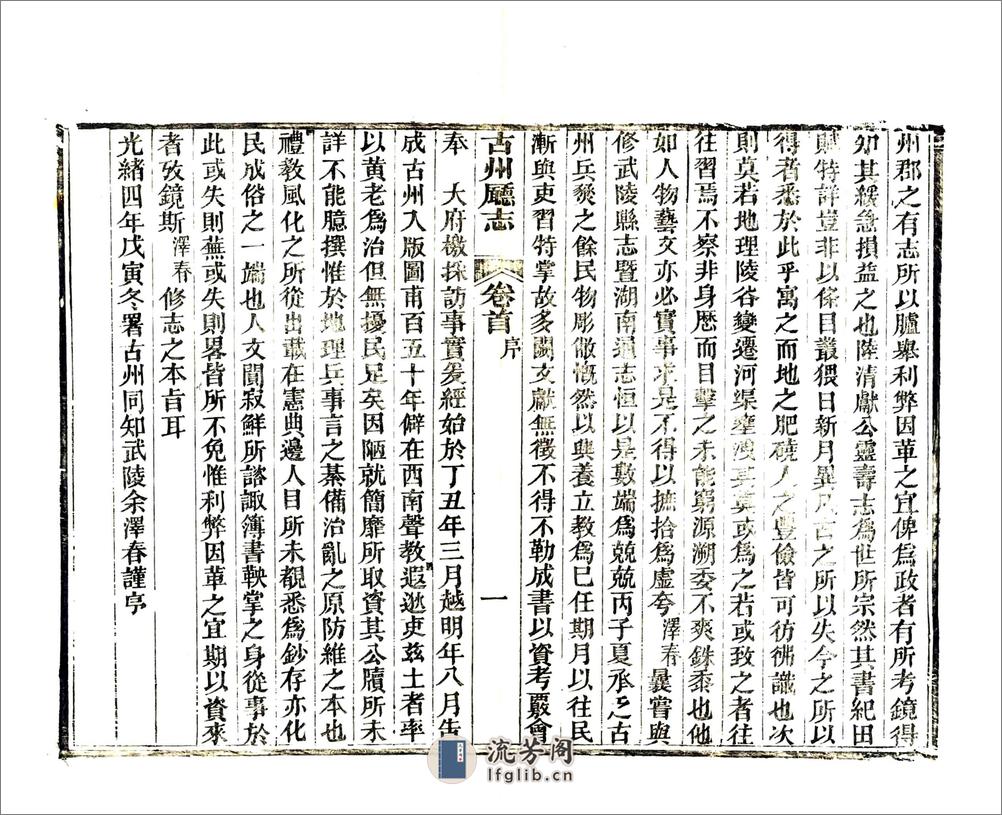 州郡之有志所以臚舉利弊因革之宜俾為政者有所考鏡得
如其緩急損益之也陸清獻公靈壽志為世所宗然其書紀田
賦特詳豈非以條目叢猥日新月異凡古之所以失今之所以
得者悉於此乎寓之而地之肥磽人之豐儉皆可彷彿識也次
則莫若地理陵谷變遷河渠壅 其 或為之若或致之者往
往習焉不察非身歷而目擊之未能窮源溯委不爽銖黍也他
如人物藝文亦必實事求是不得以摭拾為虛夸澤春曩嘗與
修武陵縣志暨湖南通志恒以是數端為兢兢丙子夏承乏古
州兵燹之餘民物彫僘慨然以興養立教為己任期月以往民
漸與吏習特掌故多闕文獻無徵不得不勒成書以資考覈會
古州廳志 卷首 序 一
奉 大府檄採訪事實爰經始於丁丑年三月越明年八月告
成古州入版圖甫百五十年僻在西南聲教遐逖吏茲土者率
以黃老為治但無擾民足矣因陋就簡靡所取資其公牘所未
詳不能臆撰惟於地理兵事言之綦備治亂之原防維之本也
禮教風化之所從出載在憲典邊人目所未覩悉為鈔存亦化
民成俗之一端也人文闃寂鮮所諮諏簿書鞅掌之身從事於
此或失則蕪或失則畧皆所不免惟利弊因革之宜期以資來
者攷鏡斯澤春修志之本旨耳
光緒四年戊寅冬署古州同知武陵余澤春謹序
流芳閣
lfglib.cn